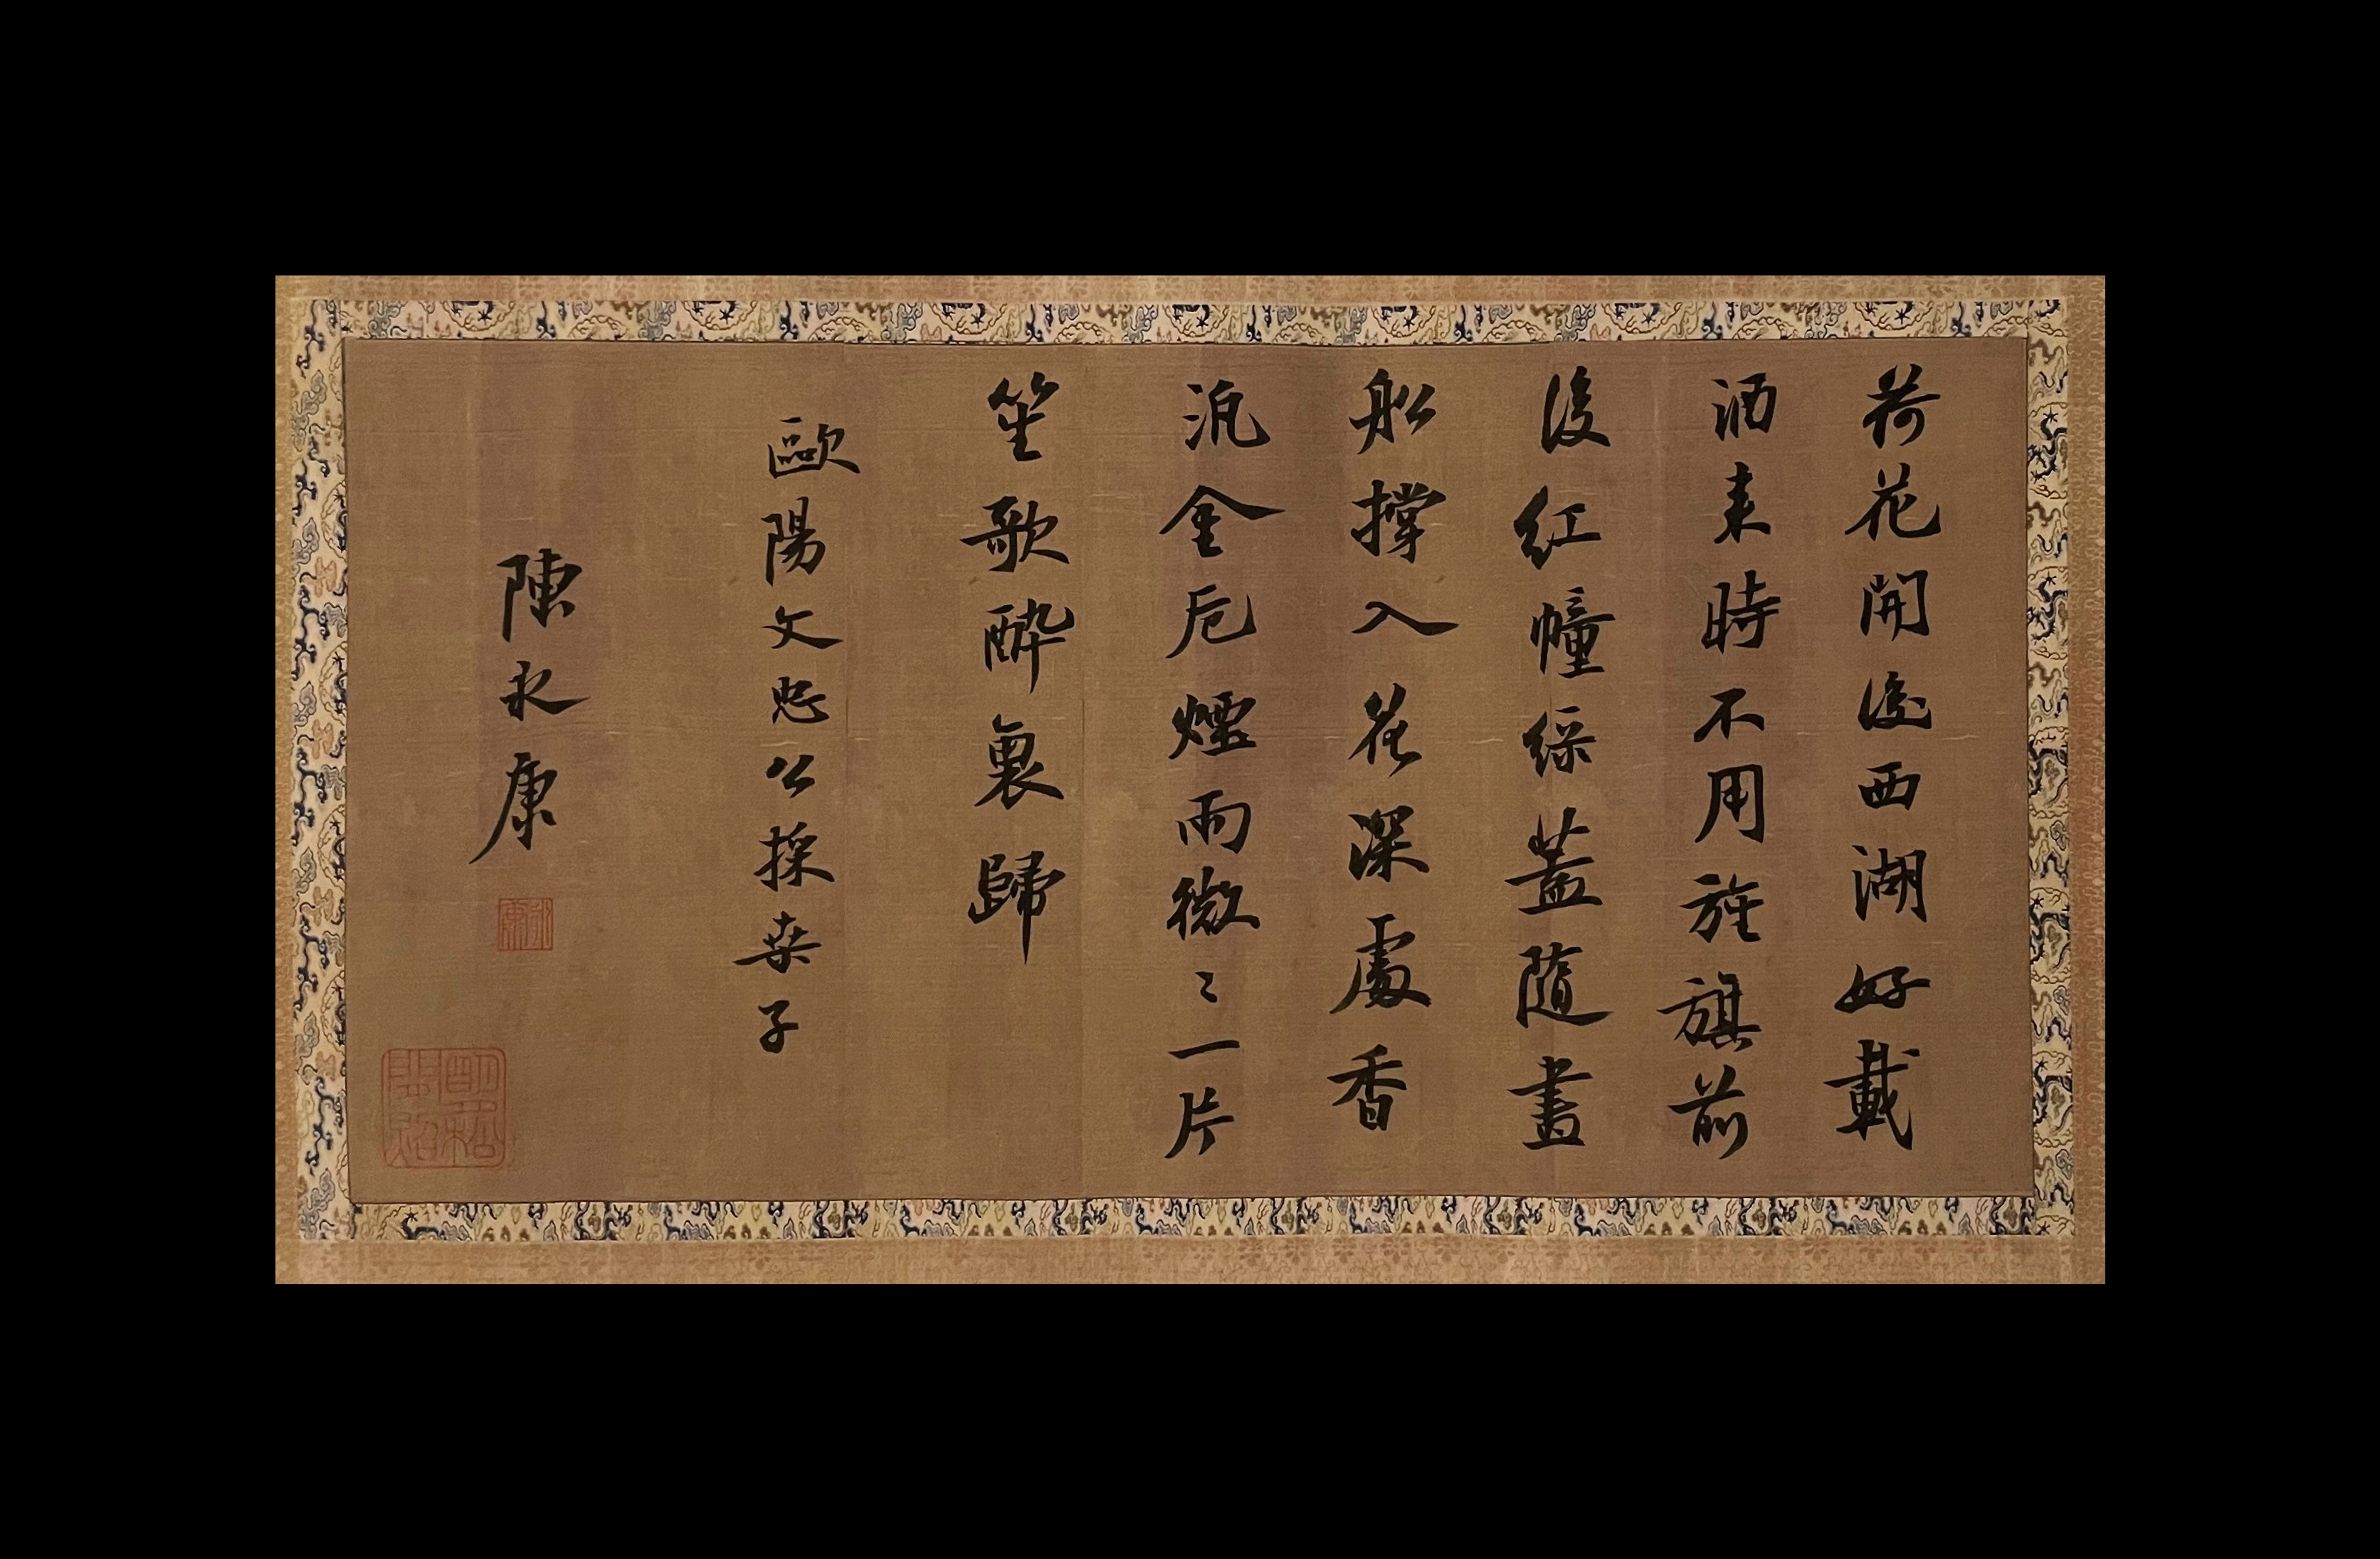 荷花開後西湖好載
酒来時不用旌旗前
後紅幢綵蓋隨畫
船撐入花深處香
泛金卮煙雨微〻一片
笙歌醉裏歸
歐陽文忠公採桑子
陳永康
永康